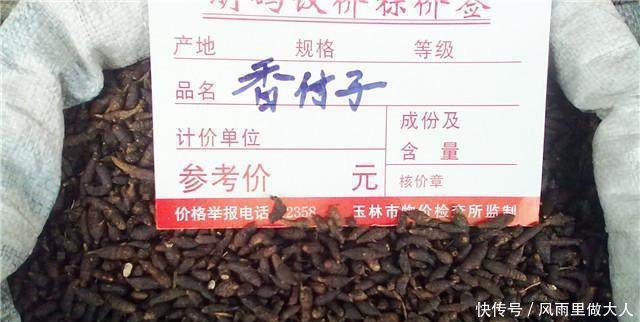 明码议价标价签
产地 规格 等级
品名 香付子
计价单位 成份及含量
参考价 元 核价章
价格举报电话 12358 玉林市物价检查所监制
快传号 / 风雨里做大人